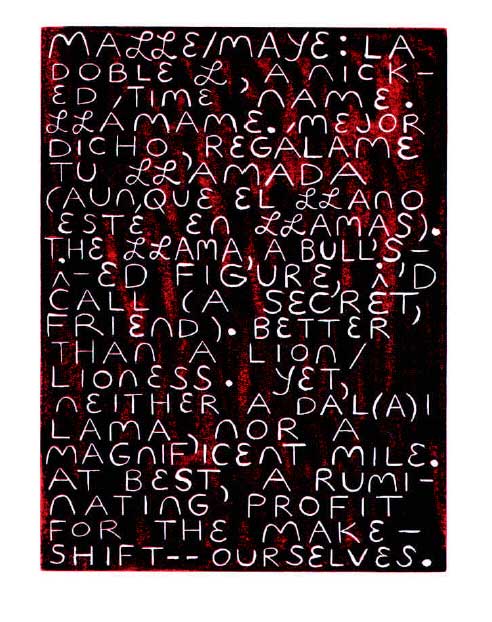 MALLE/MAYE: LA
DOBLE L, A NICK-
ED, TIME, NAME.
LLÁMAME. MEJOR
DICHO, REGÁLAME
TU LLAMADA
(AUNQUE EL LLANO
ESTÉ EN LLAMAS).
THE LLAMA, A BULL'S-
i-ED FIGURE, i'D
CALL (A SECRET,
FRIEND). BETTER
THAN A LION/
LIONESS. YET,
NEITHER A DAL(A)I
LAMA, NOR A
MAGNIFICENT MILE.
AT BEST, A RUMI-
NATING PROFIT
FOR THE MAKE-
SHIFT--OURSELVES.